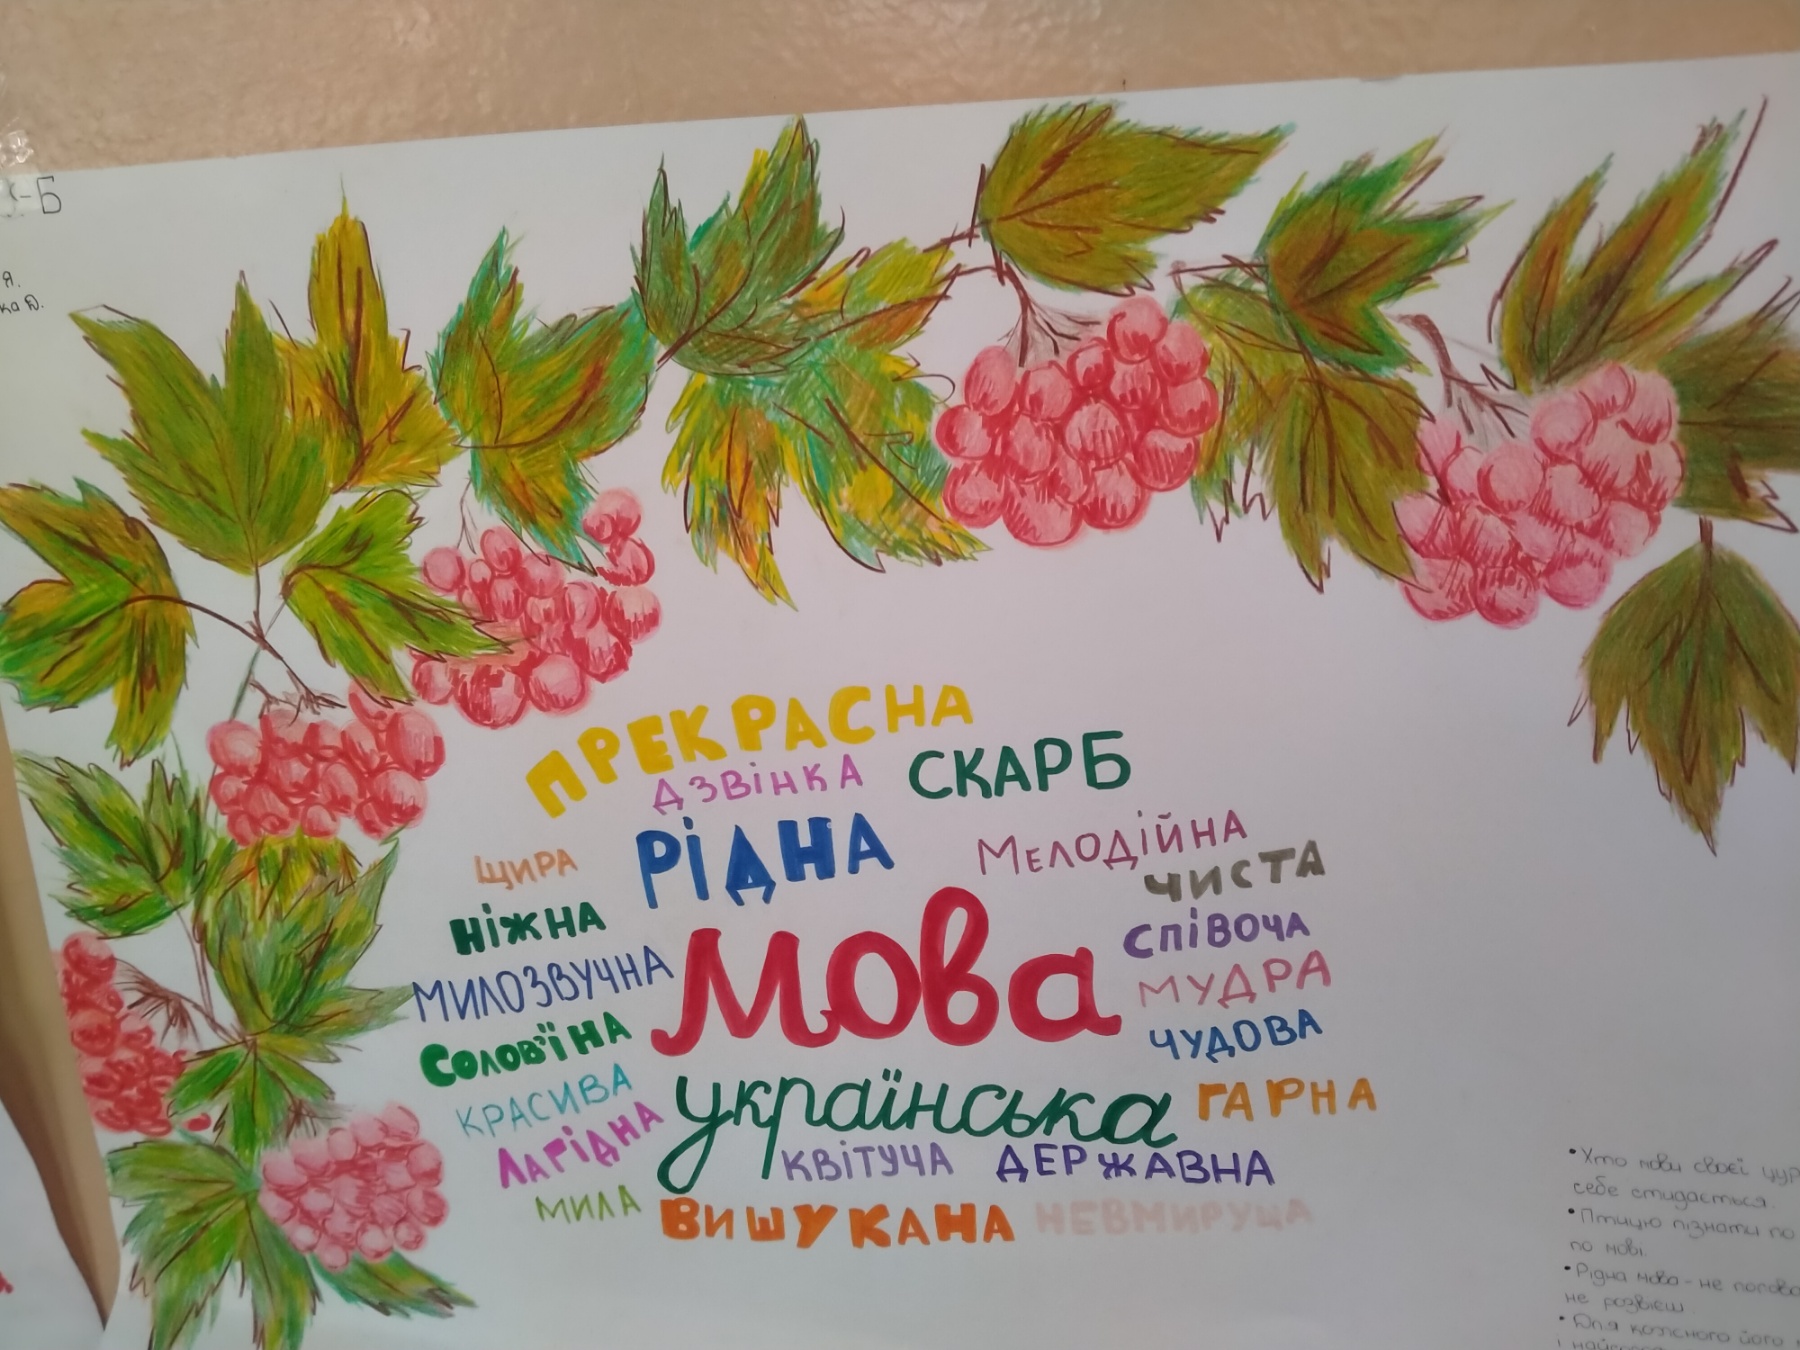 -Б
я.
ка Ю.
ПРЕКРАСНА
ДЗВІНКА СКАРБ
РІДНА МЕЛОДІЙНА
ЩИРА ЧИСТА
НІЖНА СПІВОЧА
МИЛОЗВУЧНА мова МУДРА
СОЛОВ'ЇНА ЧУДОВА
КРАСИВА українська ГАРНА
ЛАГІДНА КВІТУЧА ДЕРЖАВНА
МИЛА ВИШУКАНА НЕВМИРУЩА
• Хто мови своєї цур
себе стидається.
• Птицю пізнати по
по мові.
• Рідна мова - не полова
не розвієш.
• Для кожного його